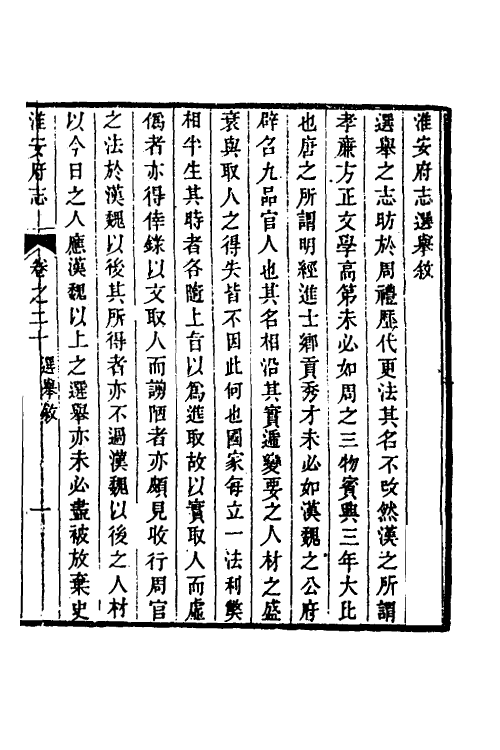 淮安府志選舉敘
選舉之志昉於周禮歷代更法其名不改然漢之所謂
孝廉方正文學高第未必如周之三物賓興三年大比
也唐之所謂明經進士鄉貢秀才未必如漢魏之公府
辟召九品官人也其名相沿其實遞變要之人材之盛
衰與取人之得失皆不因此何也國家每立一法利獘
相半生其時者各隨上旨以爲進取故以實取人而虛
僞者亦得倖錄以文取人而謭陋者亦頗見收行周官
之法於漢魏以後其所得者亦不過漢魏以後之人材
以今日之人應漢魏以上之選舉亦未必盡被放棄史
淮安府志 卷之二十 選舉敘 一